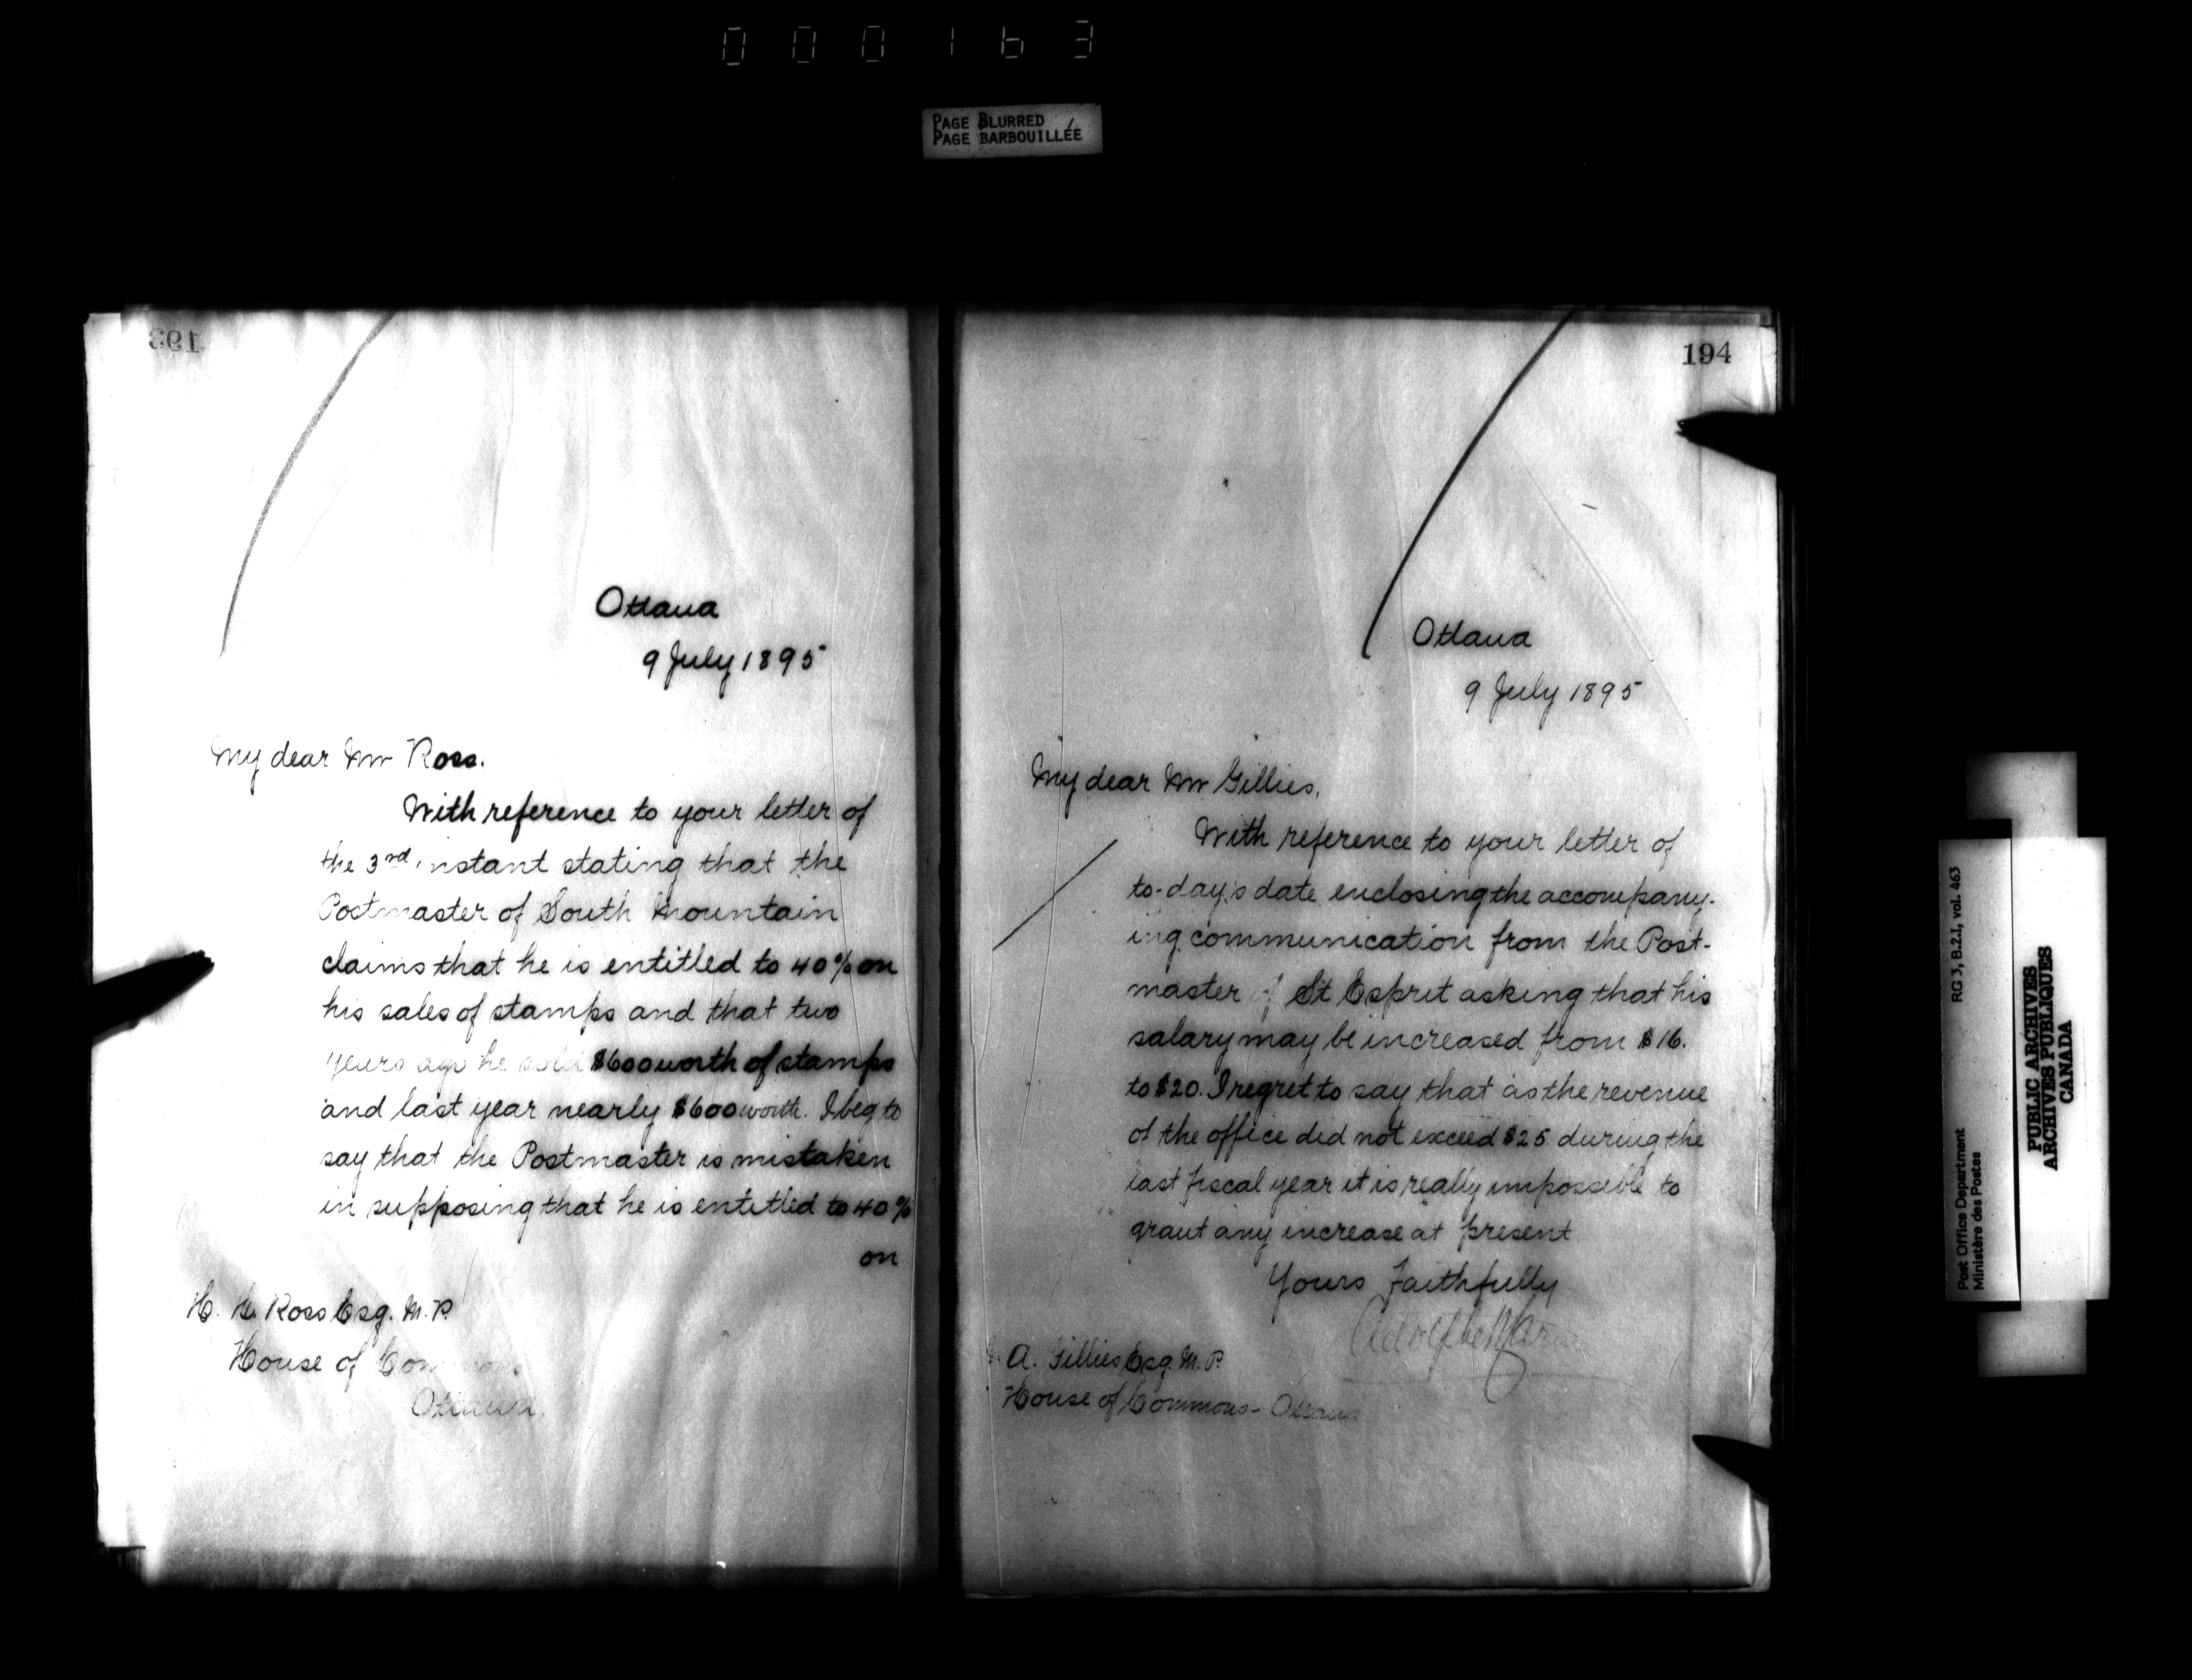 000163
PAGE BLURRED
PAGE BARBOUILLÉE
193
Ottawa
9 July 1895
My dear Mr Ross.
With reference to your letter of
the 3rd instant stating that the
Postmaster of South Mountain
claims that he is entitled to 40% on
his sales of stamps and that two
years ago he sold $600 worth of stamps
and last year nearly $600 worth. I beg to
say that the Postmaster is mistaken
in supposing that he is entitled to 40%
on
H. H. Ross Esq. M.P.
House of Commons
Ottawa.
194
Ottawa
9 July 1895
My dear Mr Gillies,
With reference to your letter of
to-day's date enclosing the accompany-
ing communication from the Post-
master of St Esprit asking that his
salary may be increased from $16.
to $20. I regret to say that as the revenue
of the office did not exceed $25 during the
last fiscal year it is really impossible to
grant any increase at present
Yours Faithfully
Adolphe Caron
A. Gillies Esq. M.P.
House of Commons - Ottawa
Post Office Department
Ministère des Postes
RG 3, B.2.I, vol. 463
PUBLIC ARCHIVES
ARCHIVES PUBLIQUES
CANADA